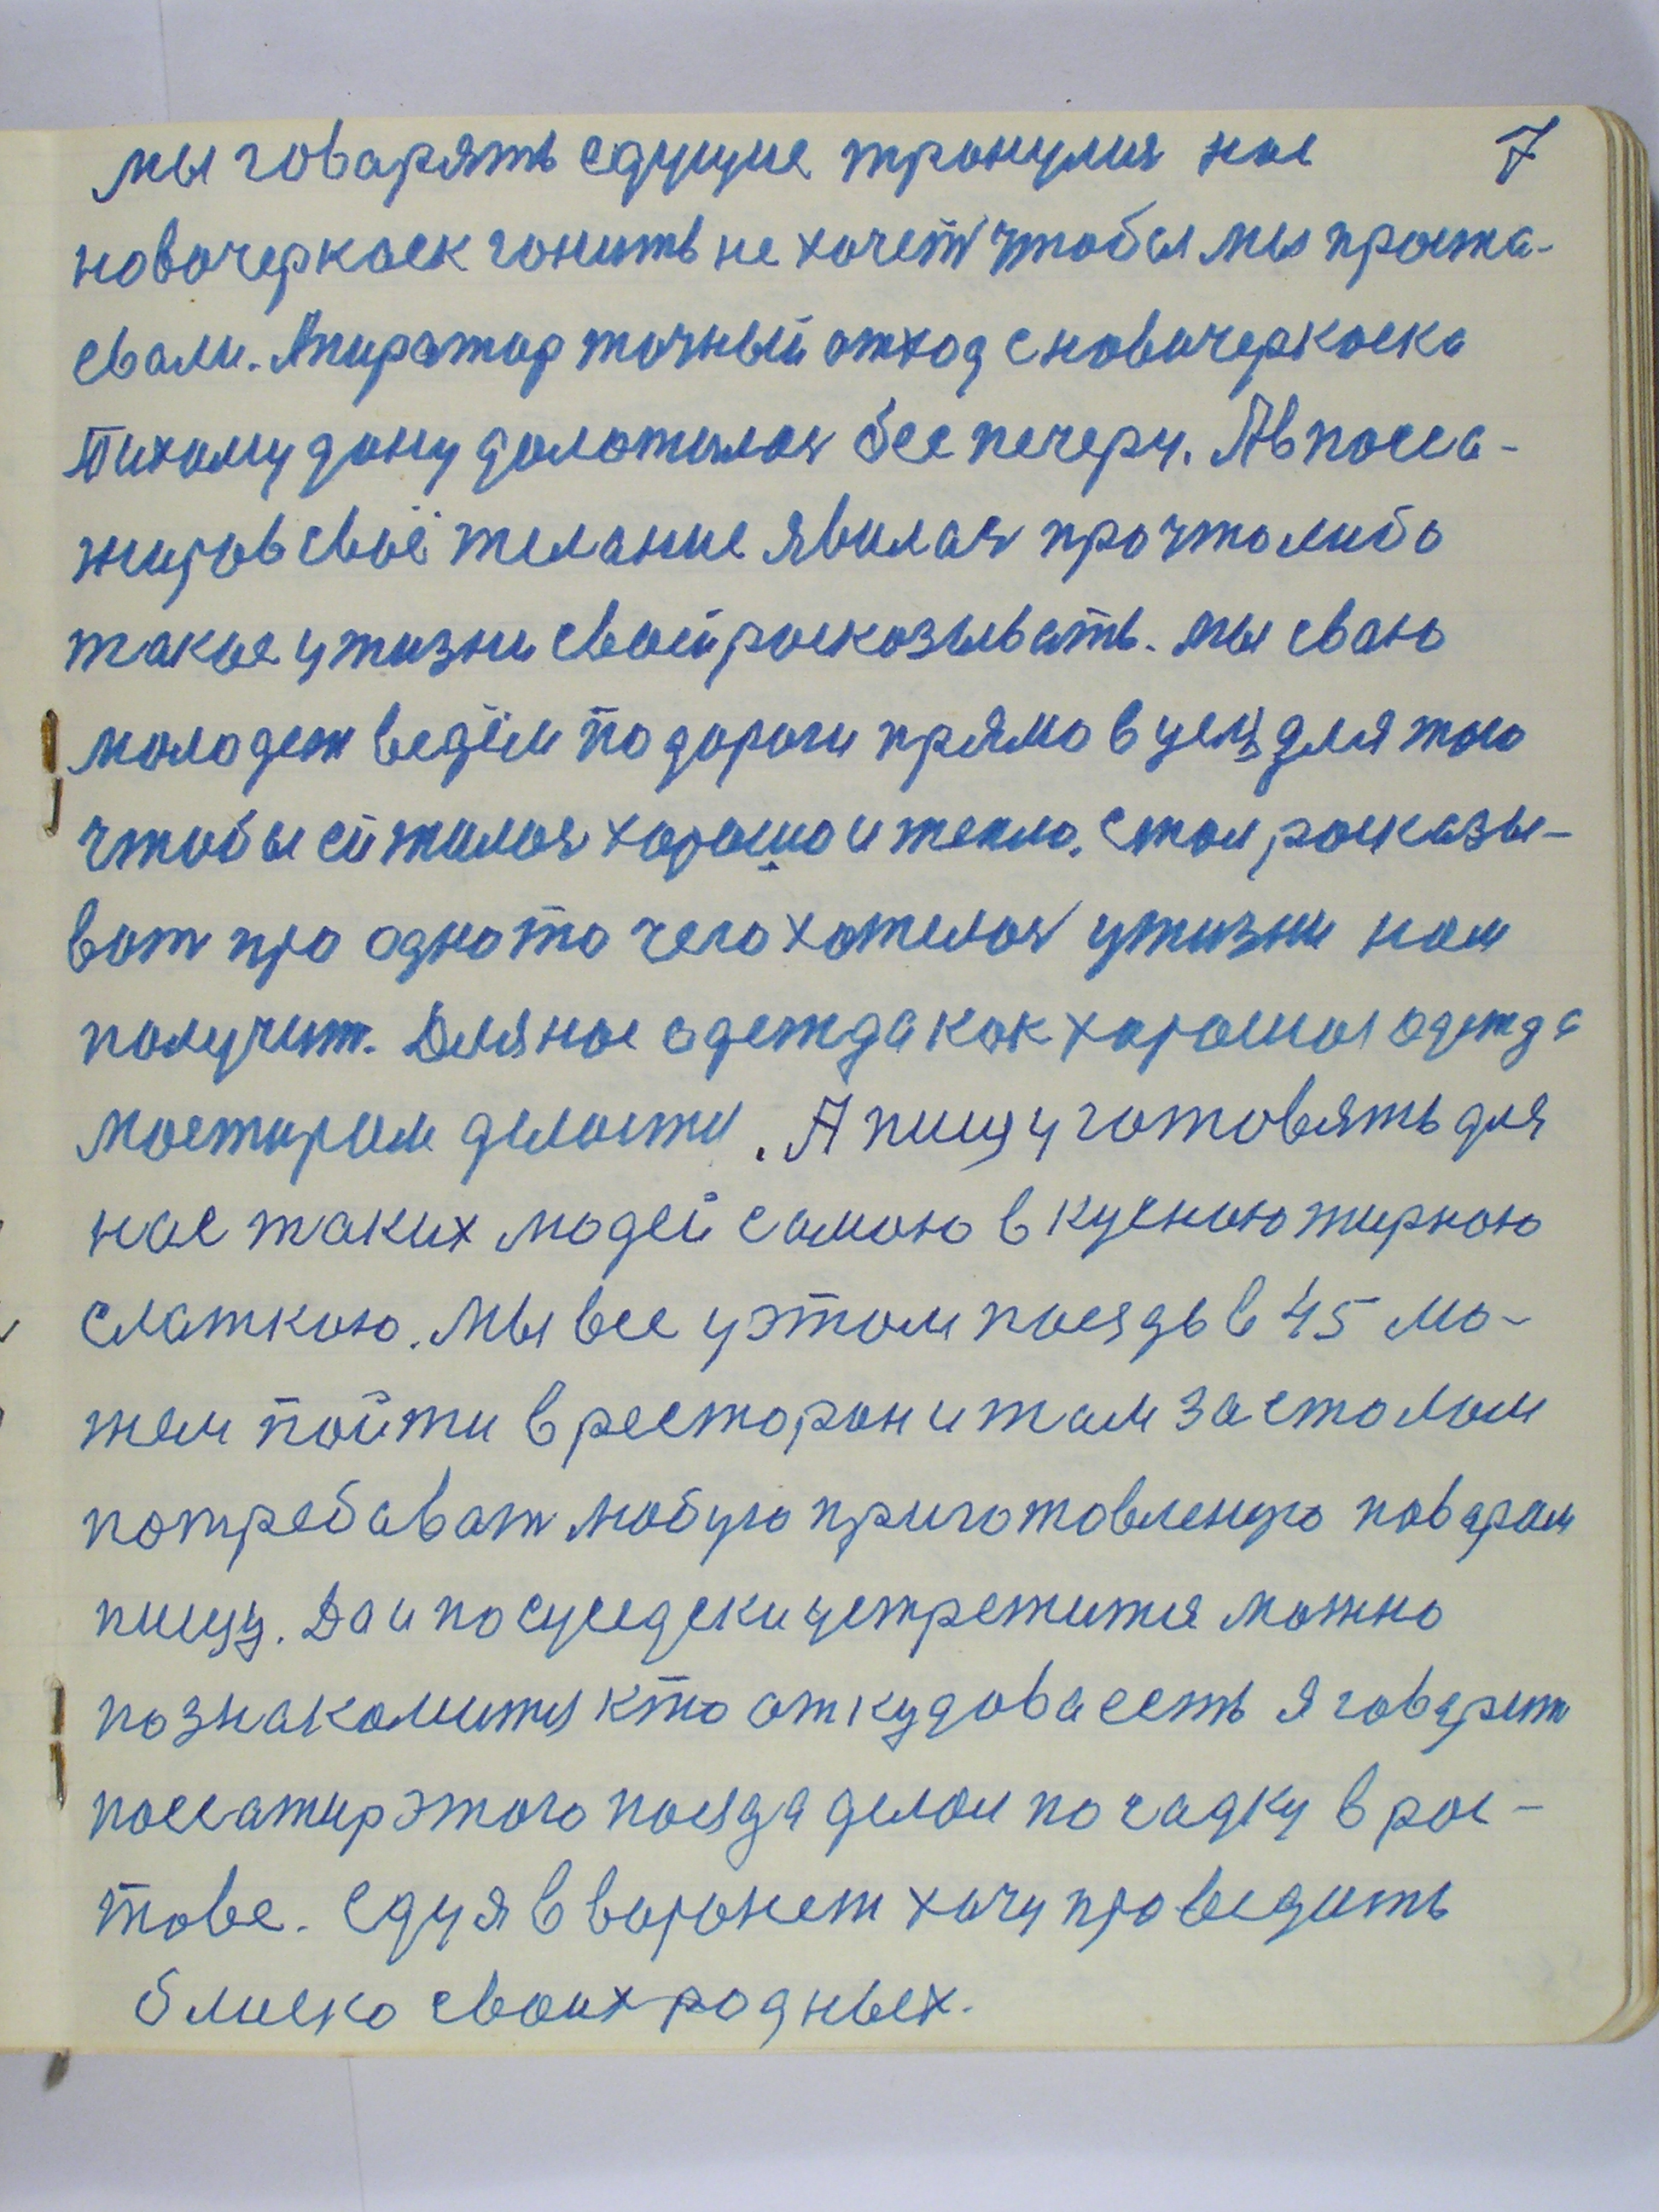 мы говарять едущие тронулия нас 7
новочеркаск гонить не хочет чтобы мы проста-
евали. Аператор точный отход с новочеркаска
Тихому дону доложился без печери. А в пасса-
жиров своё желание явилася про что либо
такое у жизни своей росказывать. мы сваю
молодеж ведём по дороги прямо в цель для того
чтобы ей жилося хорошо и тепло. Стал росказы-
ват про одно то чего хотелося у жизни нам
получит. Для нас одежда как хорошоя одежда
мостирам делости. А пищу готовять для
нас таких людей самою вкусною жирною
слаткою. Мы все у этом поездв 45 мо-
жем пойти в ресторан и там за столом
потребават любую приготовленую поваром
пищу. Да и по суседски устрежится можно
познакомится кто откудова есть я говарит
пассажир этого поезда делал посадку в рос-
тове. Еду я в воронеж хочу проведить
близко своих родных.